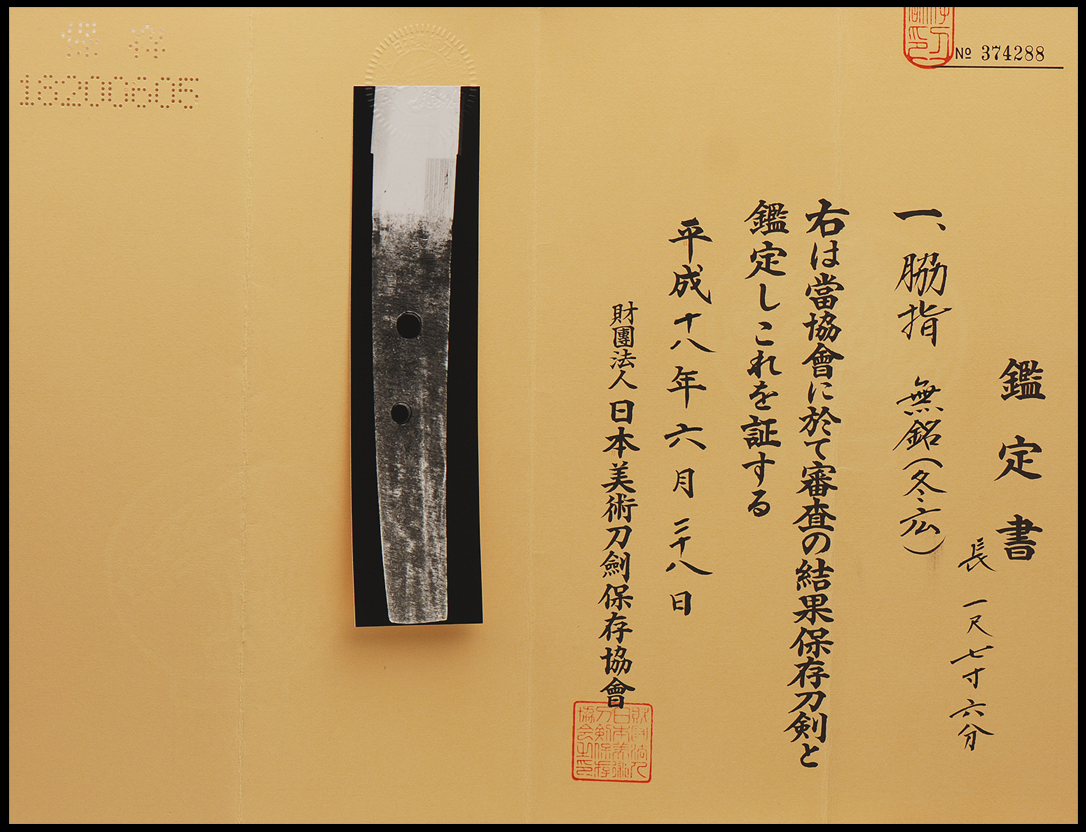 № 374288
鑑定書
一、脇指 無銘(冬広)
長 一尺七寸六分
右は當協會に於て審査の結果保存刀剣と
鑑定しこれを証する
平成十八年六月二十八日
財團法人 日本美術刀劍保存協會
財団法人
日本美術
刀剣保存
協会之印
18200605